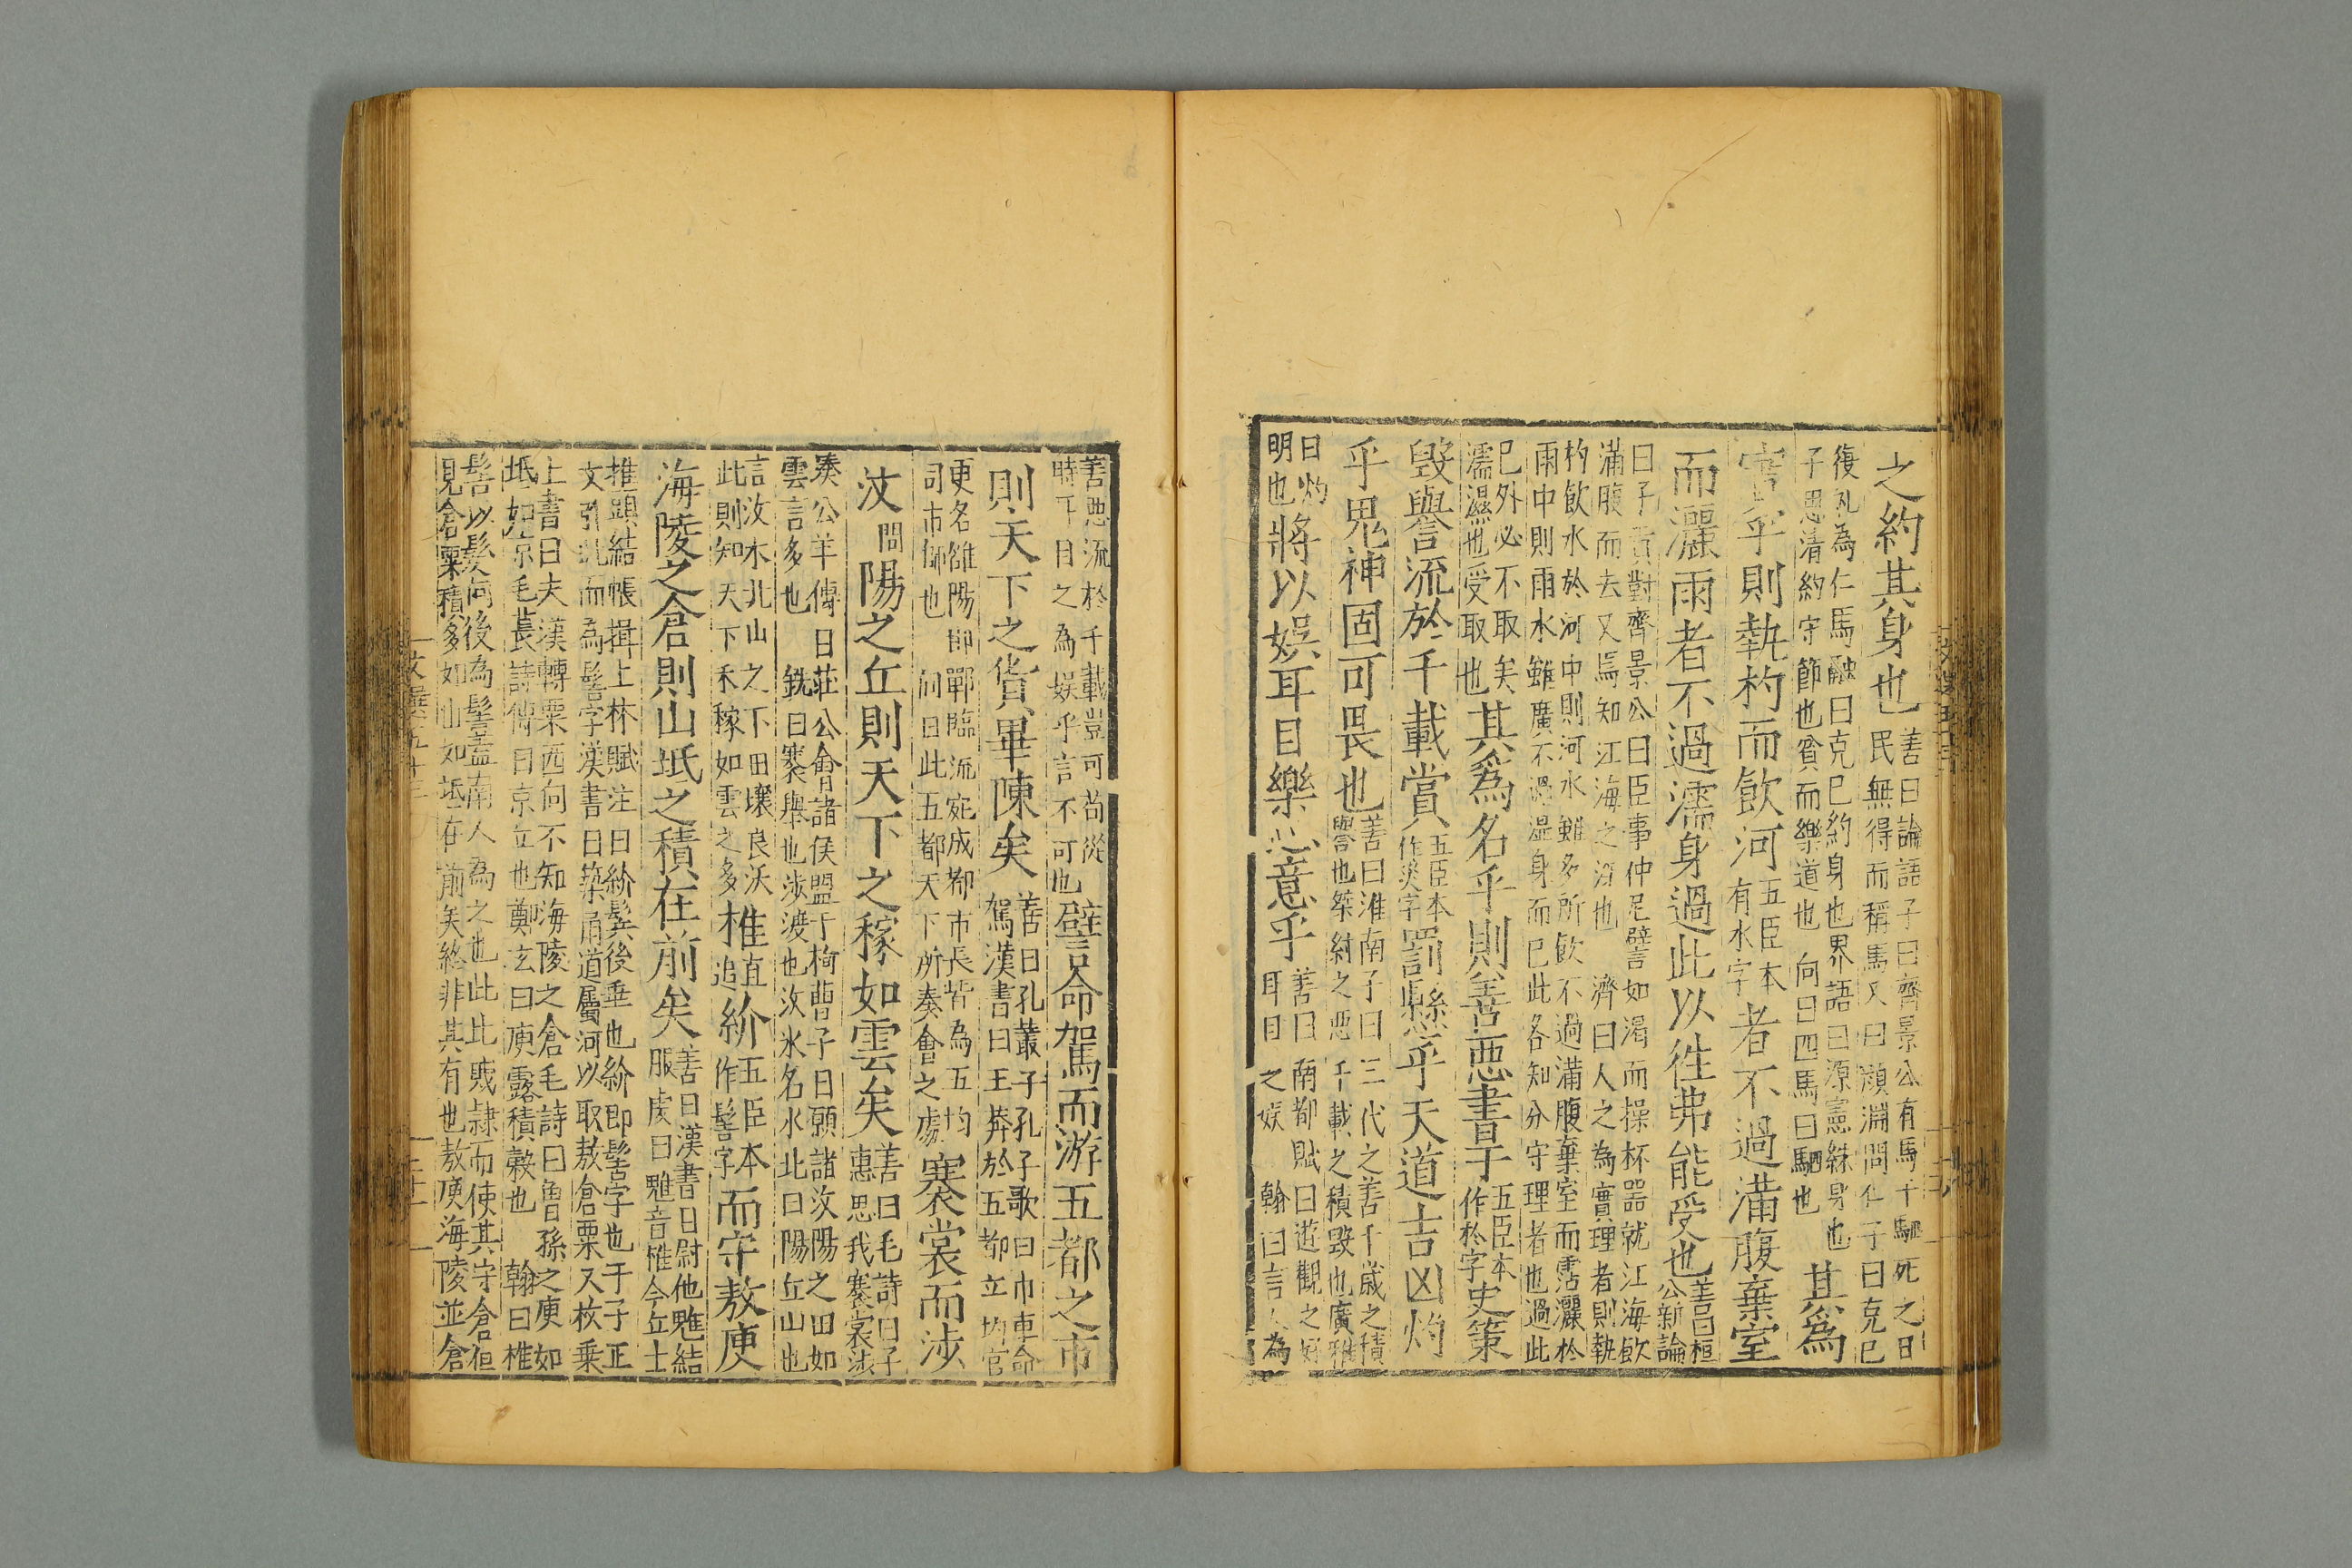 之約其身也善曰論語子曰齊景公有馬千駟死之日民無得而稱焉又曰顏淵問仁子曰克己
復礼為仁馬融曰克己約身也界語曰源憲絲身也子思清約守節也貧而樂道也向曰四馬曰駟也其為
實乎則執杓而飲河五臣本有水字者不過滿腹棄室
而灑雨者不過濡身過此以徃弗能受也善曰桓公新論
曰子貢對齊景公曰臣事仲尼譬如渴而操杯器就江海飲滿腹而去又焉知江海之深也濟曰人之為實理者則執
杓飲水於河中則河水雖多所飲不過滿腹棄室而霑灑於雨中則雨水雖廣不過湿身而已此各知分守理者也過此
已外必不取矣濡濕也受取也其爲名乎則善惡書于五臣本作於字史策
毀譽流於千載賞五臣本作奨字罰懸乎天道吉凶灼
乎鬼神固可畏也善曰淮南子曰三代之善千歲之積譽也桀紂之惡千載之積毀也廣雅
曰灼明也將以娱耳目樂心意乎善曰南都賦曰遊觀之好耳目之娱翰曰言人為
善惡流於千載豈可苟從時下目之為娱乎言不可也譬命駕而游五都之市
則天下之貨畢陳矣善曰孔叢子孔子歌曰巾車命駕漢書曰王莽於五都立均官
更名雒陽邯鄲臨淄宛成都市長皆為五均司市師也向曰此五都天下所奏會之處褰裳而涉
汶問陽之丘則天下之稼如雲矣善曰毛詩曰子惠思我褰裳涉
溱公羊傳曰莊公會諸侯盟于柯曹子曰願諸汶陽之田如雲言多也銑曰褰舉也涉渡也汶水名水北曰陽丘山也
言汶水北山之下田壤良沃此則知天下禾稼如雲之多椎直追紒五臣本作髻字而守敖庾
海陵之倉則山坻之積在前矣善曰漢書曰尉他魋結服虔曰魋音椎今丘士
推頭結帳揖上林賦注曰紒鬓後垂也紒即髻字也于子正文引此而為髻字漢書曰築甬道屬河以取敖倉粟又枚乗
上書曰夫漢轉粟西向不知海陵之倉毛詩曰曽孫之庾如坻如京毛萇詩傳曰京立也鄭玄曰庾露積穀也翰曰椎
髻以髪向後為髻盖南人為之也此比賎隷而使其守倉但見倉粟積多如山如坻在前矣終非其有也敖庾海陵並倉
文選五十三